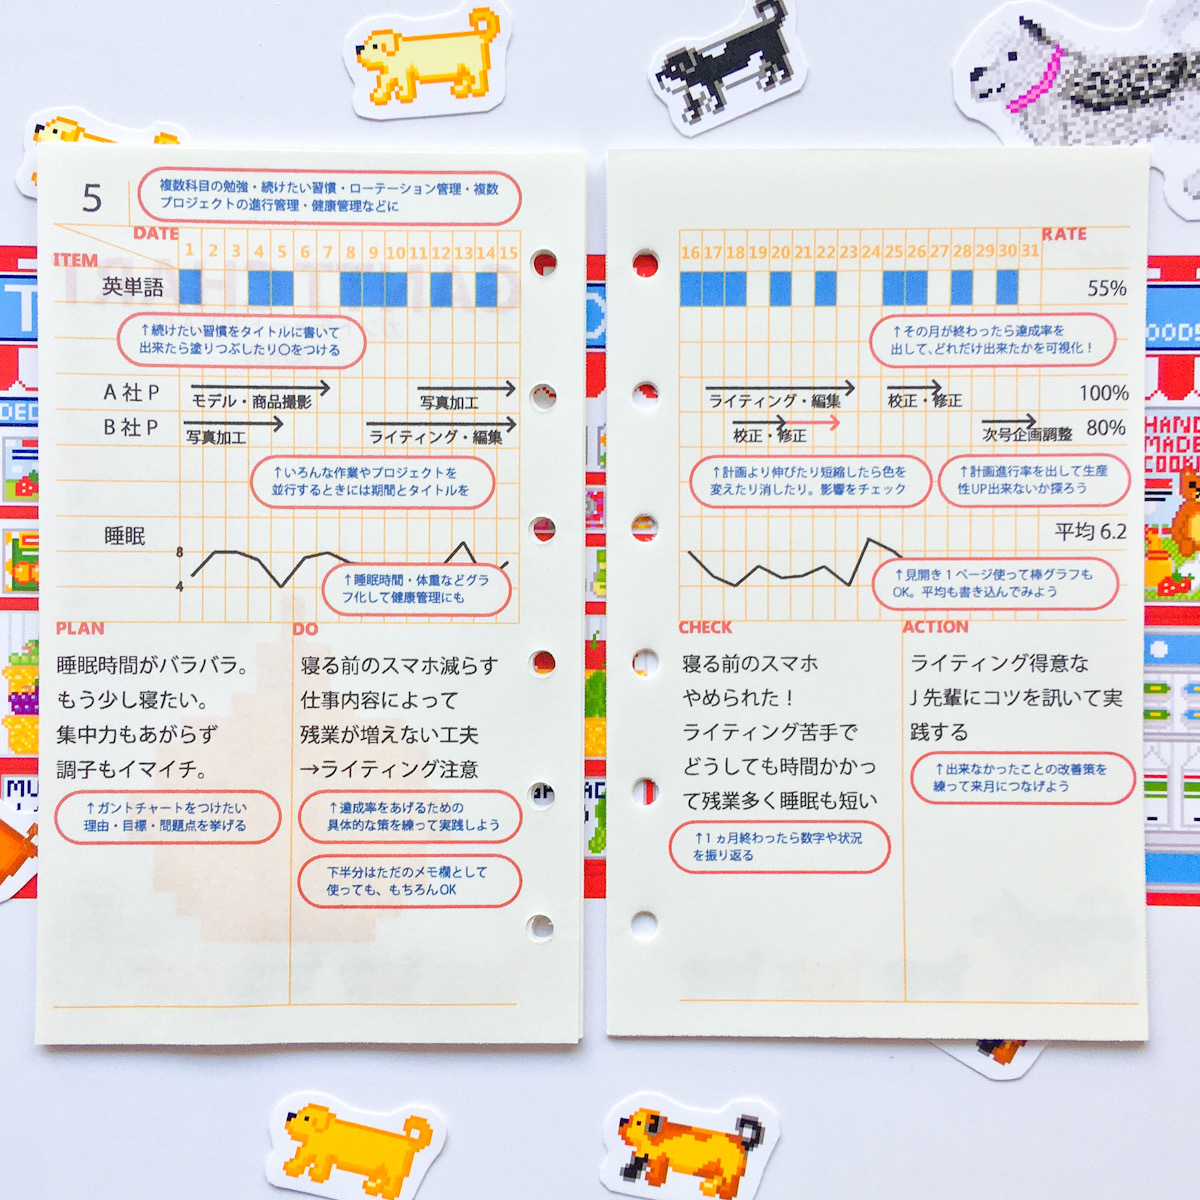 5
複数科目の勉強・続けたい習慣・ローテーション管理・複数
プロジェクトの進行管理・健康管理などに
DATE
ITEM
1 2 3 4 5 6 7 8 9 10 11 12 13 14 15
英単語
↑続けたい習慣をタイトルに書いて
出来たら塗りつぶしたり〇をつける
A社P
モデル・商品撮影
写真加工
B社P
写真加工
ライティング・編集
↑いろんな作業やプロジェクトを
並行するときには期間とタイトルを
睡眠
8
4
↑睡眠時間・体重などグラ
フ化して健康管理にも
PLAN
睡眠時間がバラバラ。
もう少し寝たい。
集中力もあがらず
調子もイマイチ。
↑ガントチャートをつけたい
理由・目標・問題点を挙げる
DO
寝る前のスマホ減らす
仕事内容によって
残業が増えない工夫
→ライティング注意
↑達成率をあげるための
具体的な策を練って実践しよう
下半分はただのメモ欄として
使っても、もちろんOK
16 17 18 19 20 21 22 23 24 25 26 27 28 29 30 31
RATE
55%
↑その月が終わったら達成率を
出して、どれだけ出来たかを可視化！
ライティング・編集
校正・修正
100%
校正・修正
次号企画調整
80%
↑計画より伸びたり短縮したら色を
変えたり消したり。影響をチェック
↑計画進行率を出して生産
性UP出来ないか探ろう
平均6.2
↑見開き1ページ使って棒グラフも
OK。平均も書き込んでみよう
CHECK
寝る前のスマホ
やめられた！
ライティング苦手で
どうしても時間かかっ
て残業多く睡眠も短い
↑1ヵ月終わったら数字や状況
を振り返る
ACTION
ライティング得意な
J先輩にコツを訊いて実
践する
↑出来なかったことの改善策を
練って来月につなげよう
HAND
MADE
COOKI